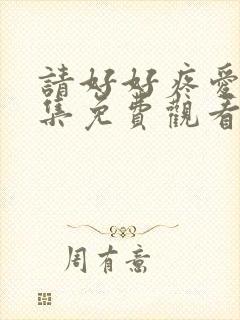 請好好疼愛
集免費觀看
周有意